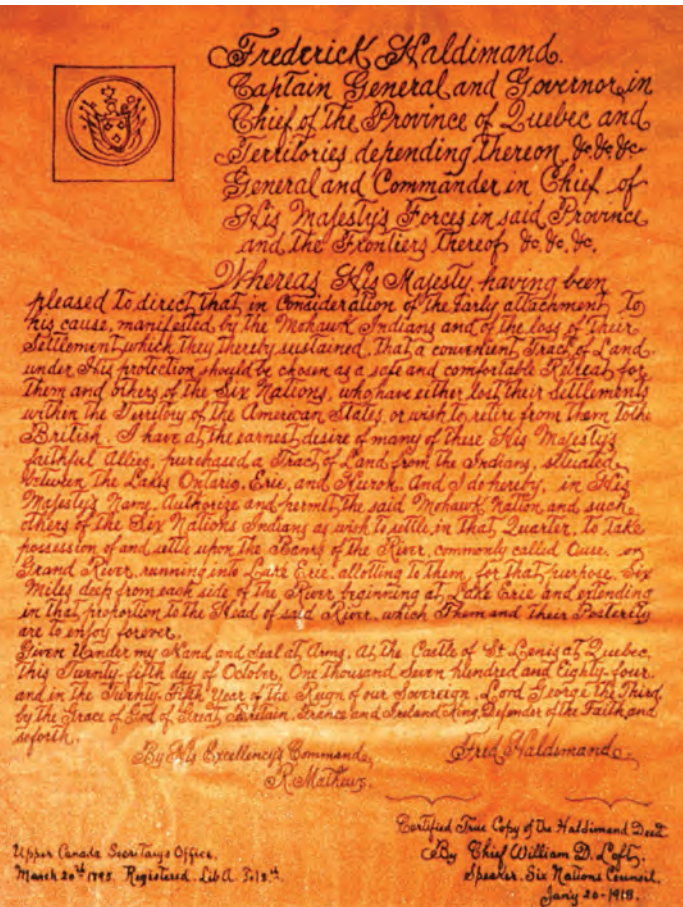 Frederick Haldimand.
Captain General and Governor in
Chief of the Province of Quebec and
Territories depending thereon, &c. &c. &c.
General and Commander in Chief of
His Majesty's Forces in said Province
and the Frontiers thereof &c. &c. &c.
Whereas His Majesty having been
pleased to direct that in Consideration of the Early attachment to
his cause, manifested by the Mohawk Indians and of the loss of their
Settlement which they thereby sustained, that a convenient Tract of Land
under His protection should be chosen as a safe and comfortable Retreat for
them and others of the Six Nations, who have either lost their Settlements
within the Territory of the American States, or wish to retire from them to the
British. I have at the earnest desire of many of these His Majesty's
faithful Allies, purchased a Tract of Land from the Indians, situated
between the Lakes Ontario, Erie, and Huron. And I do hereby, in His
Majesty's Name, Authorize and permit the said Mohawk Nation and such
others of the Six Nations Indians as wish to settle in that Quarter, to take
possession of and settle upon the Banks of the River, commonly called Ouse, or
Grand River, running into Lake Erie, allotting to them, for that purpose, Six
Miles deep from each side of the River beginning at Lake Erie and extending
in that proportion to the Head of said River, which Them and Their Posterity
are to enjoy forever.
Given Under my Hand and Seal at Arms, At the Castle of St Lewis at Quebec
this Twenty-fifth day of October, One Thousand Seven hundred and Eighty-four
and in the Twenty-Fifth Year of the Reign of our Sovereign, Lord George the Third
by the Grace of God of Great Britain, France and Ireland King, Defender of the Faith and
soforth.
By His Excellency's Command, Fred Haldimand
R. Mathews.
Certified True Copy of the Haldimand Deed
By Chief William D. Loft,
Speaker, Six Nations Council.
Jan'y 20-1918.
Upper Canada Secritarys Office,
March 20th 1795. Registered. Lib A.